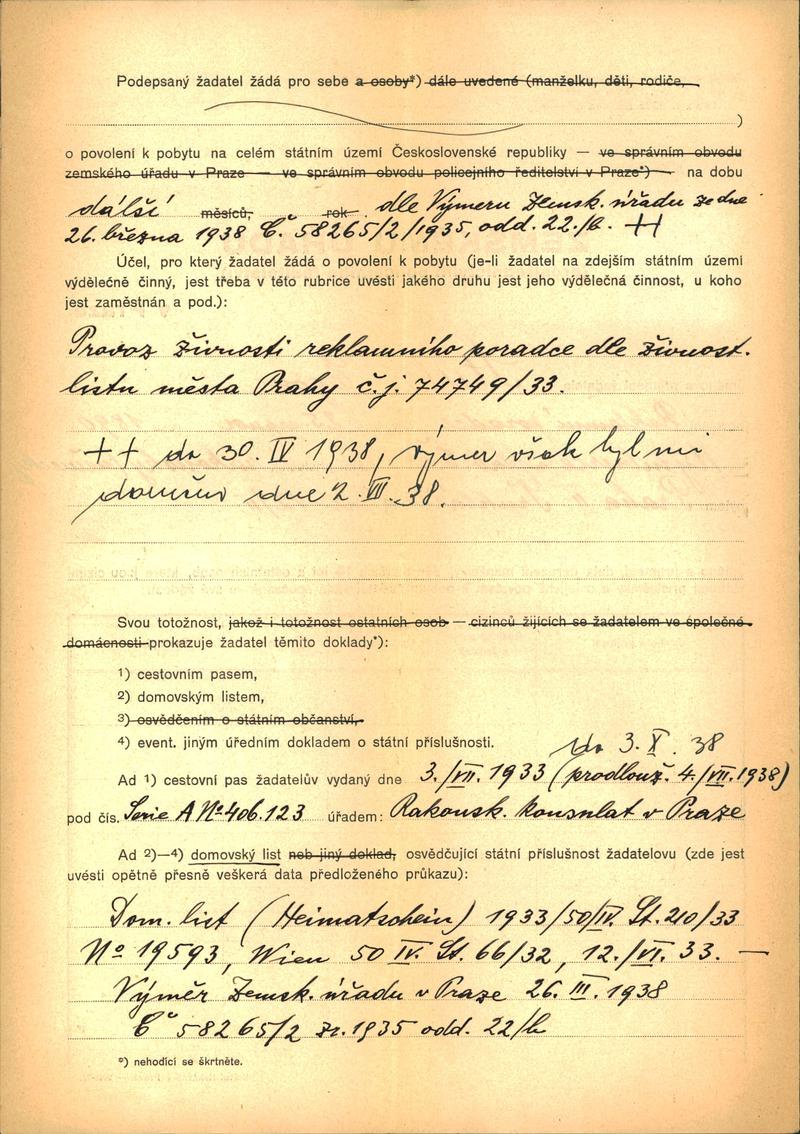 Podepsaný žadatel žádá pro sebe a osoby*) dále uvedené (manželku, děti, rodiče,
)
o povolení k pobytu na celém státním území Československé republiky — ve správním obvodu
zemského úřadu v Praze — ve správním obvodu policejního ředitelství v Praze*) — na dobu
další měsíců, rok dle Výmeru Zemsk. úřadu ze dne
26. března 1938 Č. 58265/2/1935, odd. 22./b. ++
Účel, pro který žadatel žádá o povolení k pobytu (je-li žadatel na zdejším státním území
výdělečně činný, jest třeba v této rubrice uvésti jakého druhu jest jeho výdělečná činnost, u koho
jest zaměstnán a pod.):
Provoz živnosti reklamního poradce dle živnost.
listu města Prahy č.j. 74749/33.
++ do 30. IV 1938, výmer však byl mi
doručen dne 2. III. 38.
Svou totožnost, jakož i totožnost ostatních osob — cizinců žijících se žadatelem ve společné
domácnosti prokazuje žadatel těmito doklady*):
1) cestovním pasem,
2) domovským listem,
3) osvědčením o státním občanství,
4) event. jiným úředním dokladem o státní příslušnosti.
do 3. X. 38
Ad 1) cestovní pas žadatelův vydaný dne 3./VII. 1933 (prodlouž. 4./VII. 1938)
pod čís. Serie A No 406.123 úřadem: Rakousk. konsulat v Praze
Ad 2)—4) domovský list neb jiný doklad, osvědčující státní příslušnost žadatelovu (zde jest
uvésti opětně přesně veškerá data předloženého průkazu):
Dom. list (Heimatschein) 1933/50/IV. St. 210/33
No 19593, Wien 50 IV. St. 66/32, 12./VI. 33. —
Výměr Zemsk. úřadu v Praze 26. III. 1938
Č 58265/2 zr. 1935 odd. 22/b
*) nehodící se škrtněte.